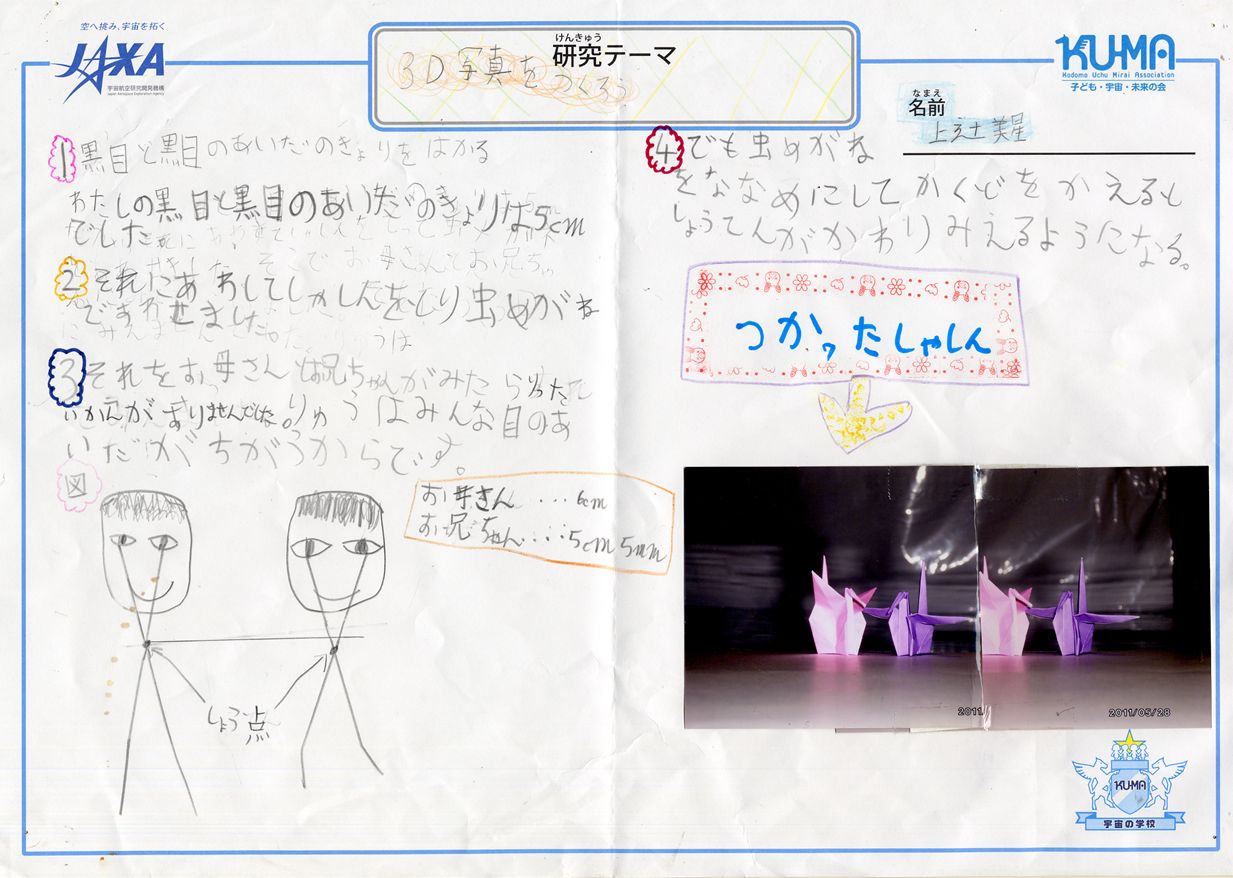 空へ挑み、宇宙を拓く
JAXA
宇宙航空研究開発機構
Japan Aerospace Exploration Agency
けんきゅう
研究テーマ
3D写真をつくろう
KU-MA
Kodomo Uchu Mirai Association
子ども・宇宙・未来の会
なまえ
名前
美星
1 黒目と黒目のあいだのきょりをはかる
わたしの黒目と黒目のあいだのきょりは5cm
でした
2 それにあわしてしゃしんをとり虫めがね
であわせました
3 それをお母さんとお兄ちゃんがみたら
りません
りゆうはみんな目のあ
いだがちがうからです。
図
お母さん・・・6cm
お兄ちゃん・・・・5cm5mm
しょう点
4 でも虫めがね
をななめにしてかくどをかえると
しょうてんがかわりみえるようになる。
つかったしゃしん
2011
2011/05/28
KU-MA
宇宙の学校